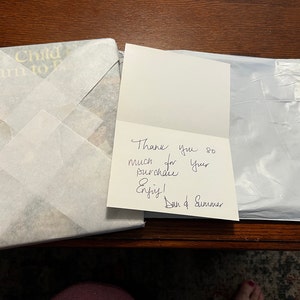 Child
Thank you so
much for your
purchase
Enjoy!
Dan & Summer